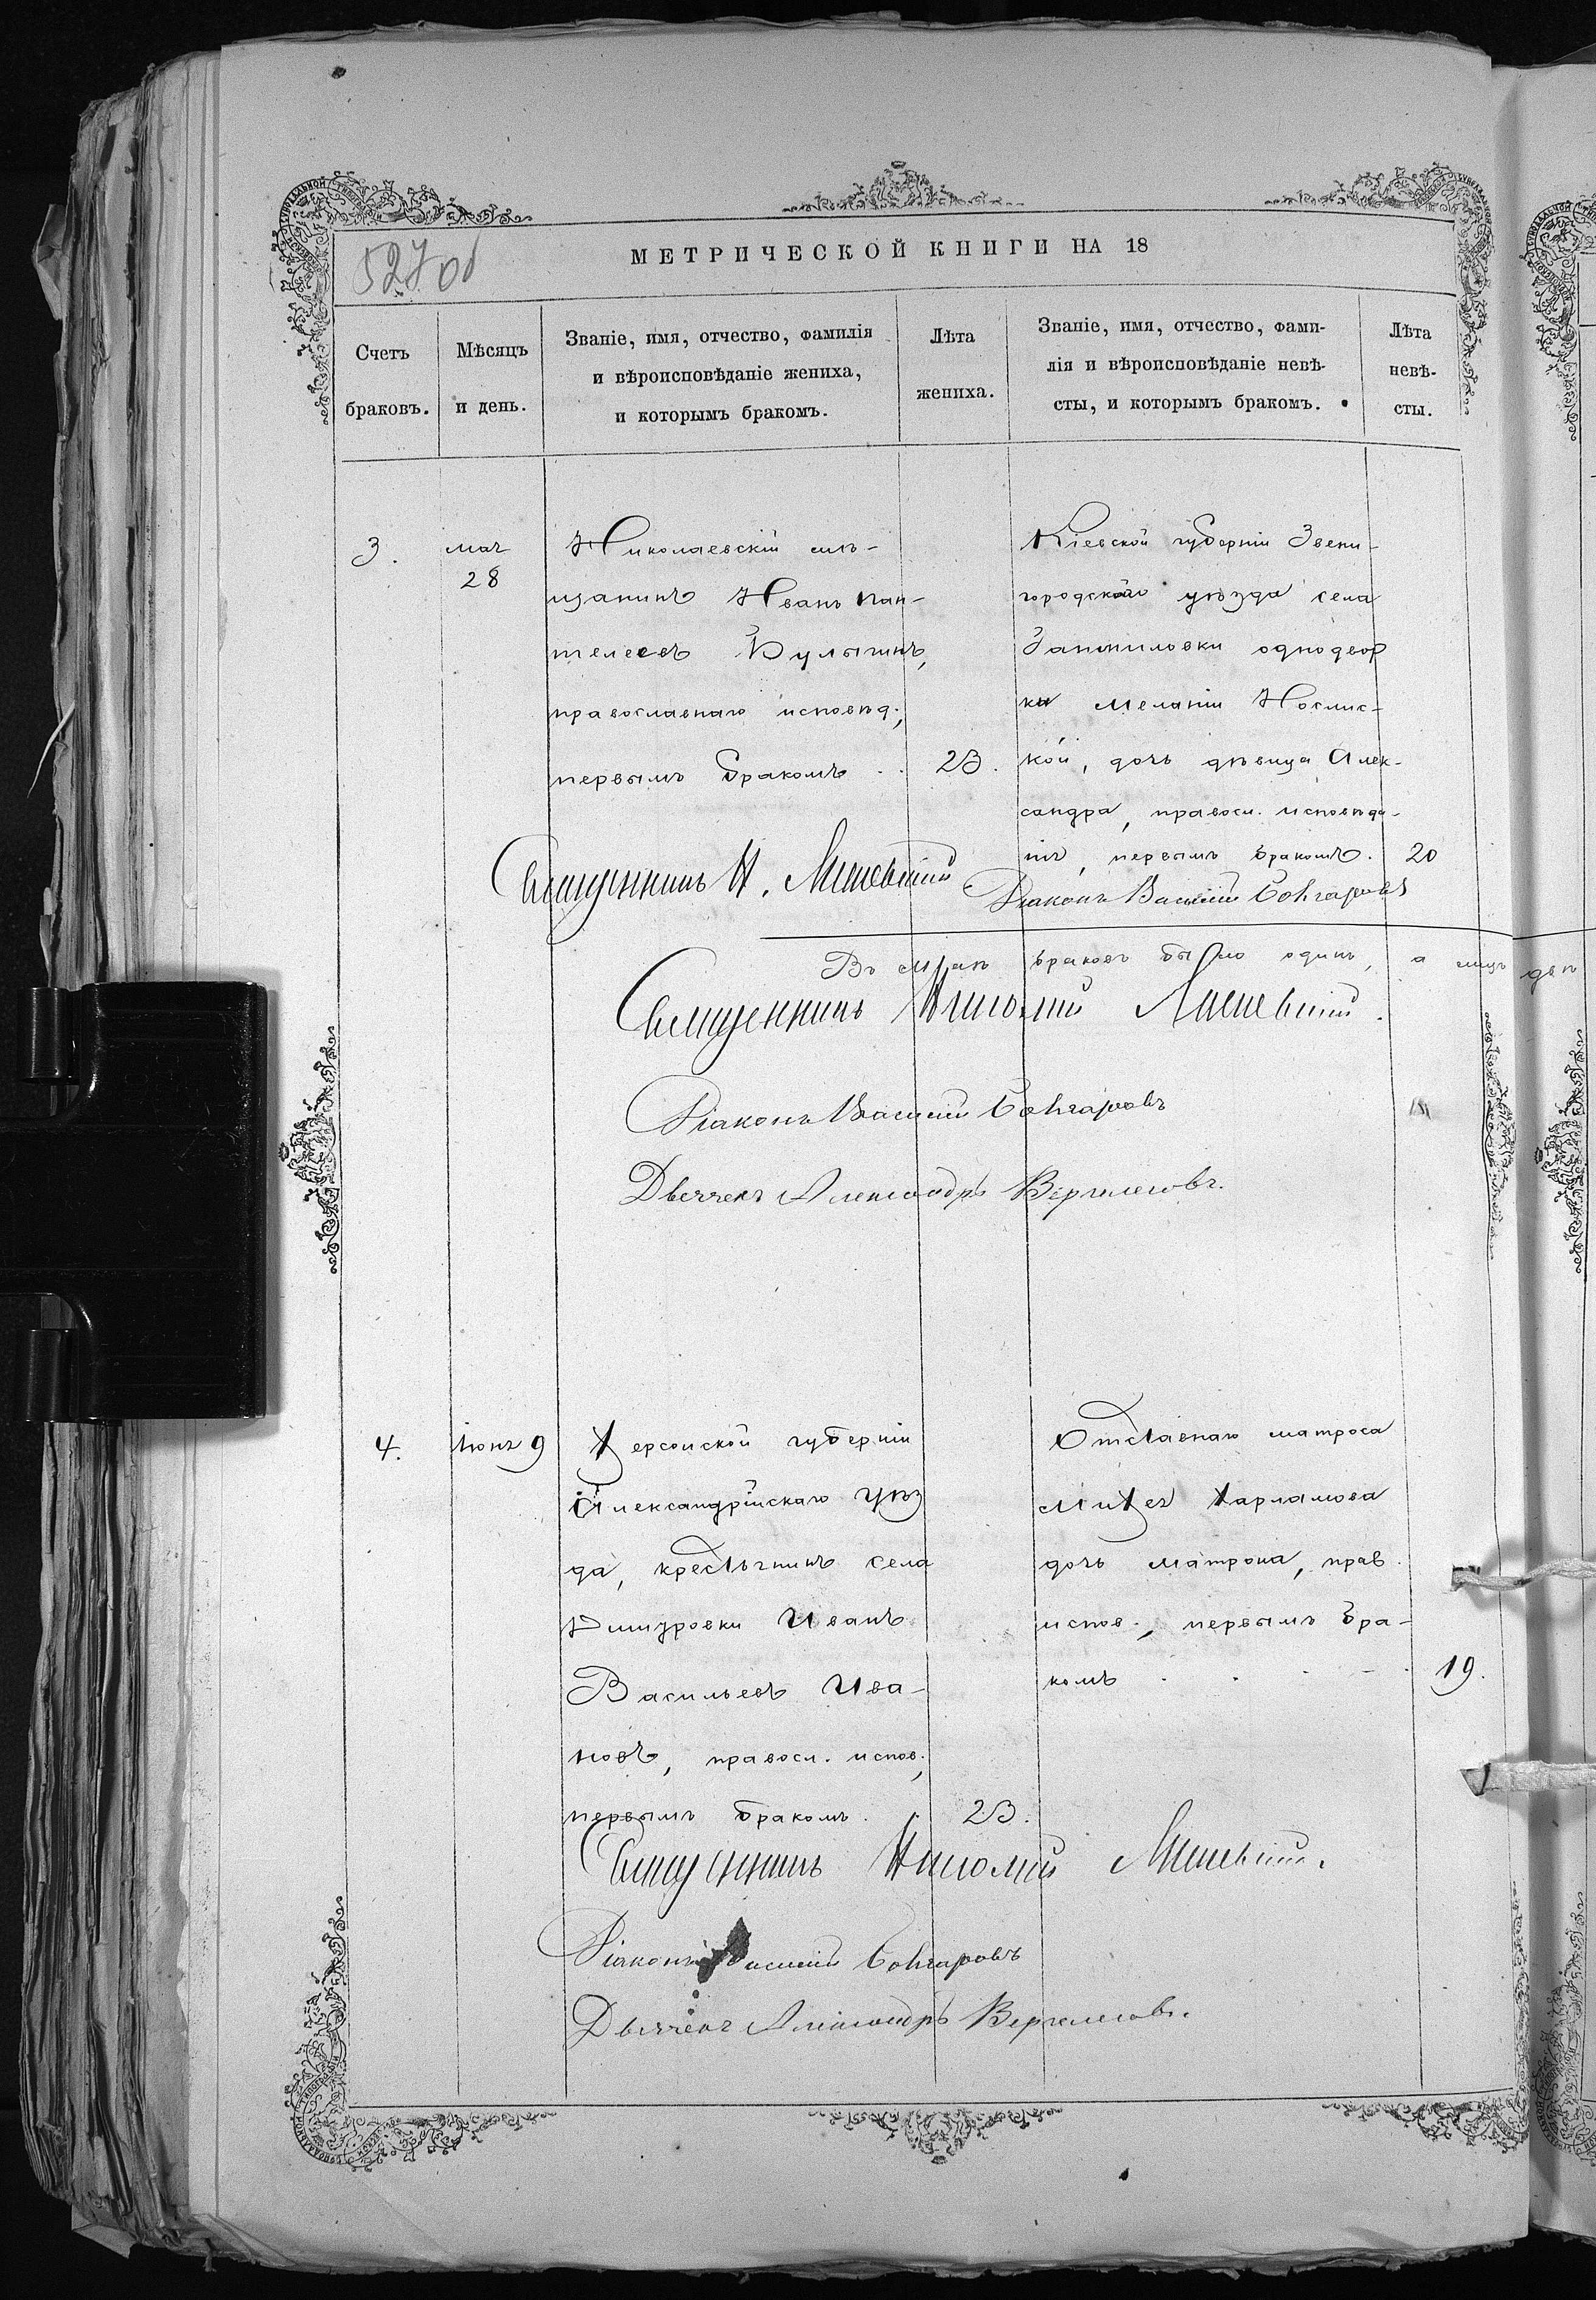 527 об
МЕТРИЧЕСКОЙ КНИГИ НА 18
Счетъ браковъ.
Мѣсяцъ и день.
Званіе, имя, отчество, фамилія
и вѣроисповѣданіе жениха,
и которымъ бракомъ.
Лѣта жениха.
Званіе, имя, отчество, фами-
лія и вѣроисповѣданіе невѣ-
сты, и которымъ бракомъ.
Лѣта невѣ-
сты.
3.
мая
28
Николаевскій мѣ-
щанинъ Иванъ Пан-
телеевъ Булыгинъ,
православнаго исповѣд.,
первымъ бракомъ . .
23.
Кіевской губерніи Звени-
городскаго уѣзда села
однодвор
ки Меланіи
кой, дочь дѣвица Алек-
сандра, правосл. исповѣда-
нія, первымъ бракомъ.
20
Священникъ Н.
Діаконъ Василій
Въ маѣ браковъ было одинъ, а лицъ двѣ
Священникъ Николай
Діаконъ Василій
Дьячекъ Александръ
4.
Іюня 9
Херсонской губерніи
Александрійскаго уѣз
да, крестьянинъ села
Дмитровки Иванъ
Васильевъ Ива-
новъ, правосл. испов.,
первымъ бракомъ.
23.
Отставнаго матроса
Михея Харламова
дочь Матрона, прав.
испов., первымъ бра-
комъ
19.
Священникъ Николай
Діаконъ Василій
Дьячекъ Александръ